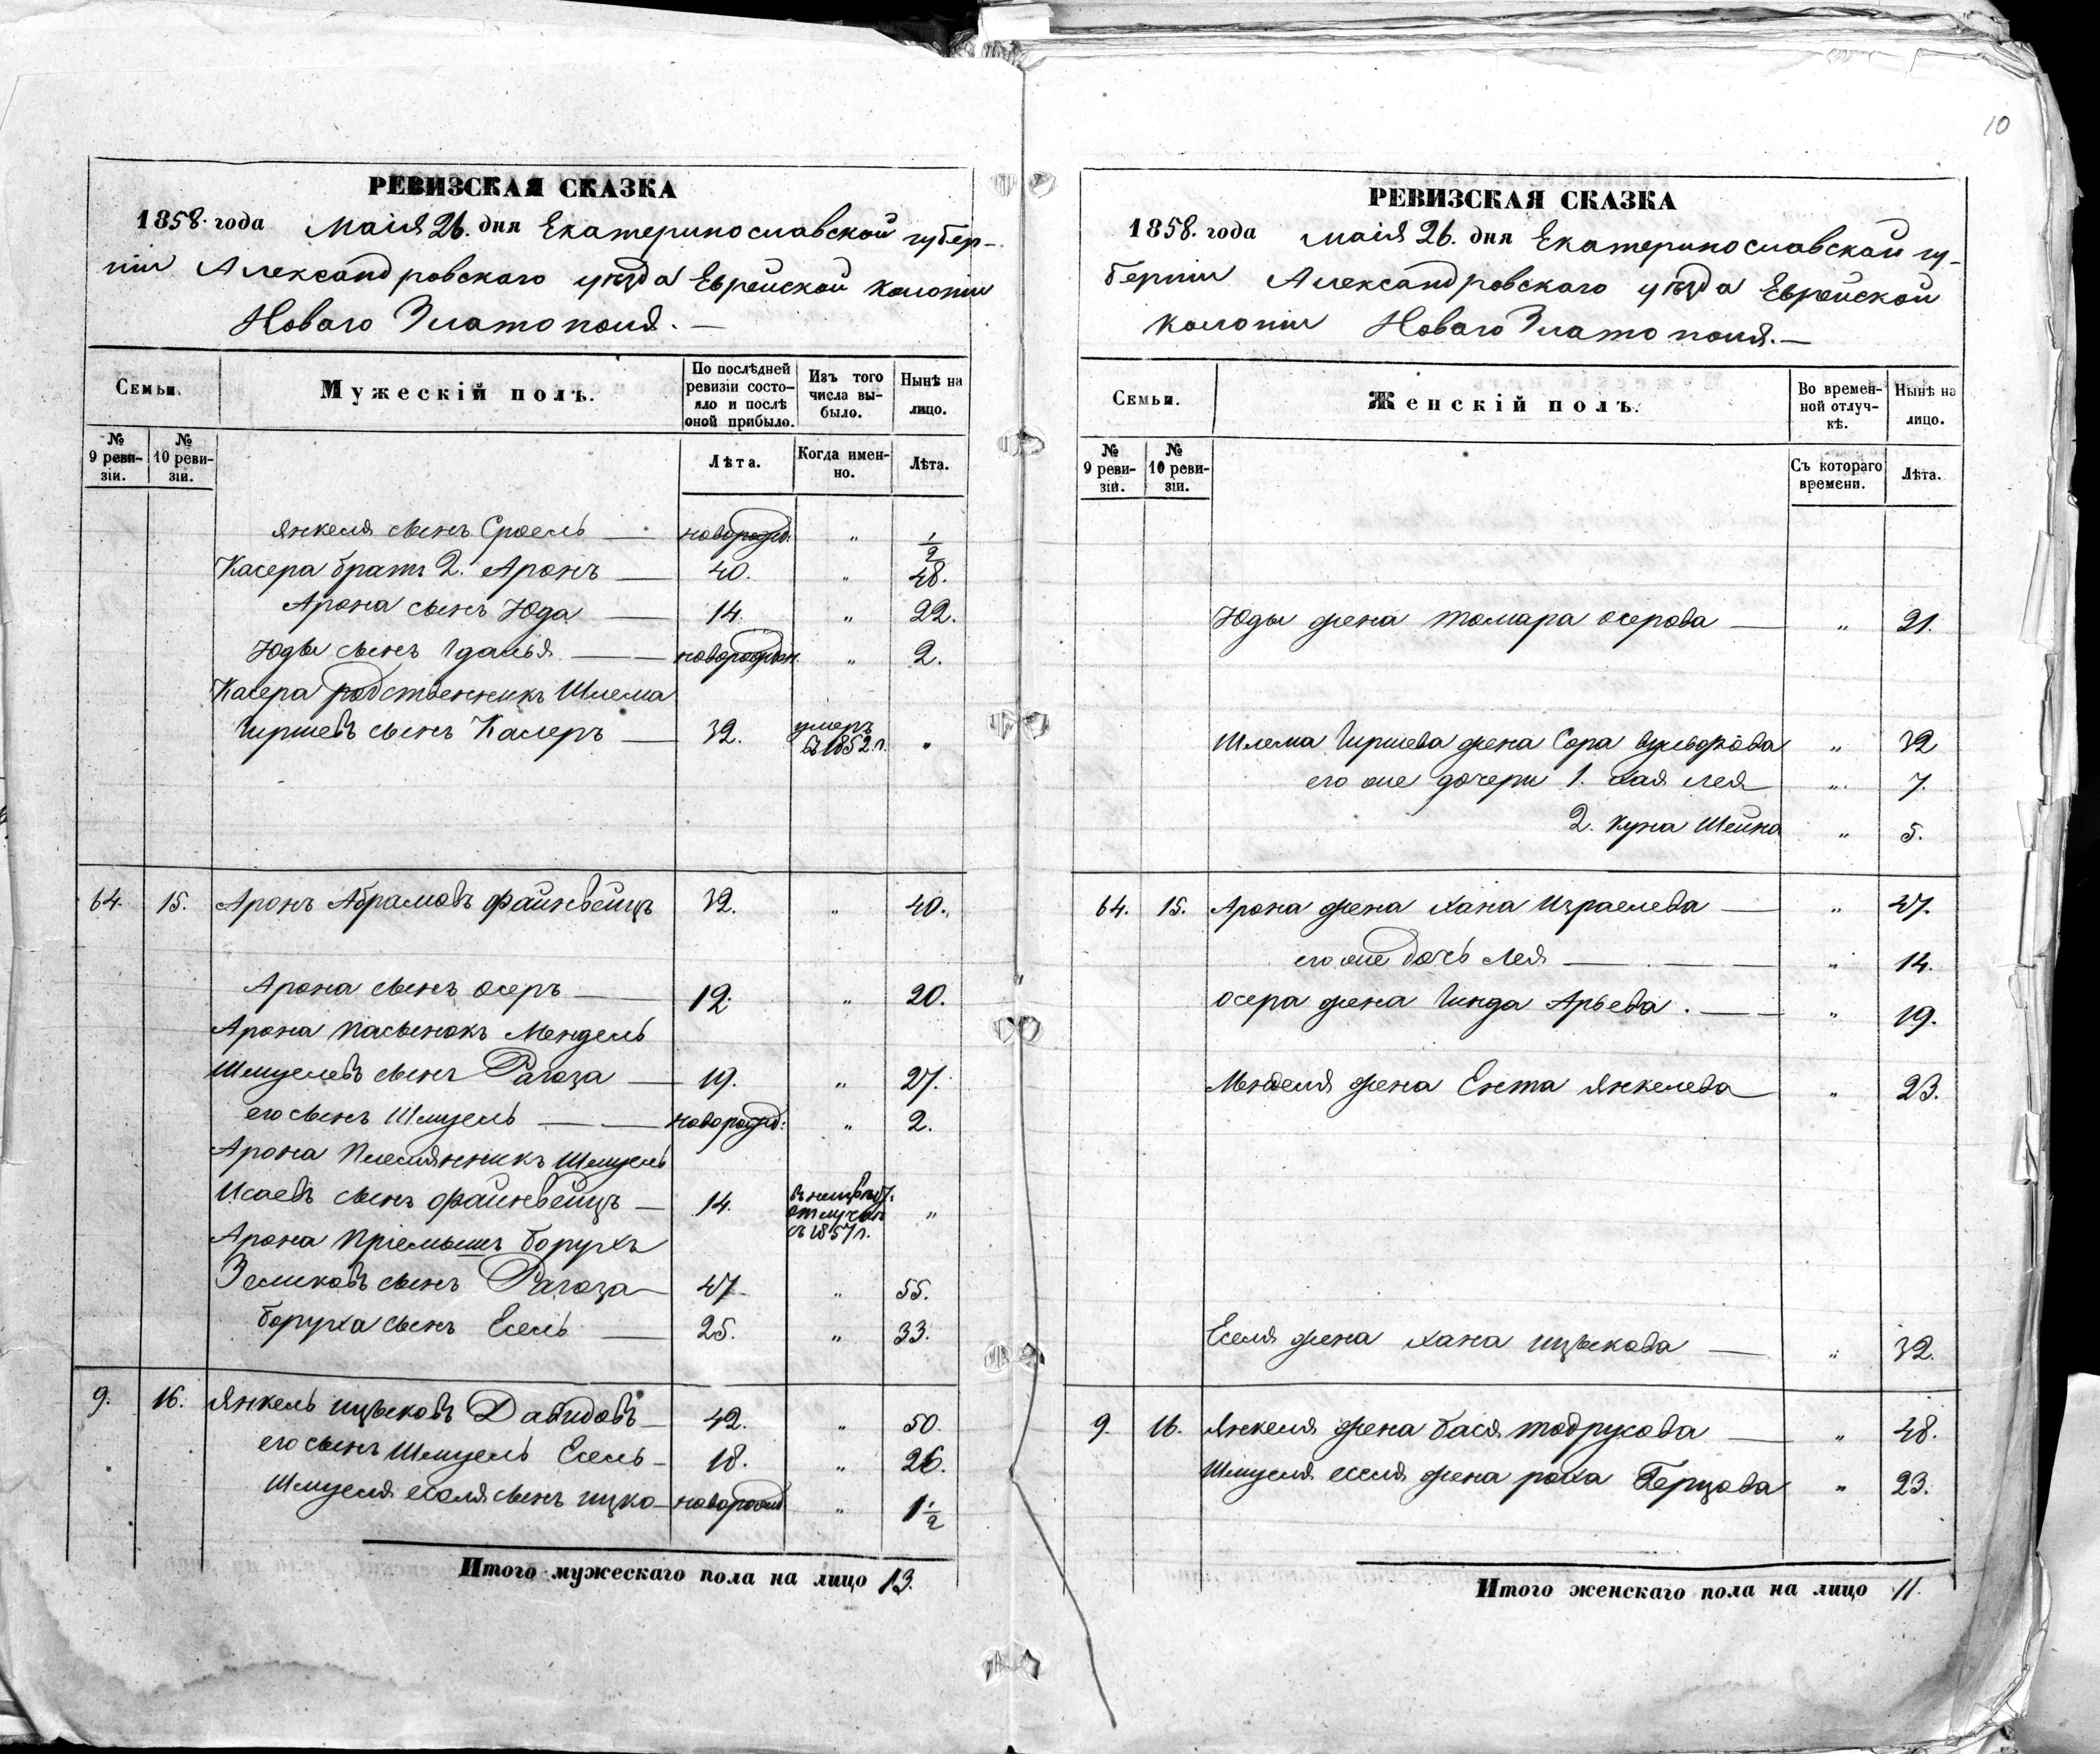 РЕВИЗСКАЯ СКАЗКА
1858. года маія 26. дня Екатеринославской губер-
ніи Александровскаго уѣзда Еврейской колоніи
Новаго Златополя. —
Семьи.
Мужескій полъ.
По послѣдней ревизіи состояло и послѣ оной прибыло.
Изъ того числа выбыло.
Нынѣ на лицо.
№ 9 ревизіи.
№ 10 ревизіи.
Лѣта.
Когда именно.
Лѣта.
Янкеля сынъ Сроель — новорожд. " 1/2
Касера братъ 2. Аронъ — 40. " 48.
Арона сынъ Юда — 14. " 22.
Юды сынъ Гдалья — новорожден. " 2.
Касера родственникъ Шлема
Гиршевъ сынъ Касеръ — 32. умеръ въ 1852 г. "
64. 15. Аронъ Абрамовъ Файнвейцъ 32. " 40.
Арона сынъ Осеръ — 12. " 20.
Арона пасынокъ Мендель
Шмуелевъ сынъ Рагоза — 19. " 27.
его сынъ Шмуель — новорожд: " 2.
Арона племянникъ Шмуель
Исаевъ сынъ Файнвейцъ — 14. отлучкѣ съ 1857 г. "
Арона пріемышъ Борухъ
Зеликовъ сынъ Рагоза — 47. " 55.
Боруха сынъ Есель — 25. " 33.
9. 16. Янкель Ицьковъ Давидовъ — 42. " 50.
его сынъ Шмуель Есель — 18. " 26.
Шмуеля Еселя сынъ Ицко — новорожд " 1 1/2
Итого мужескаго пола на лицо 13.
10
РЕВИЗСКАЯ СКАЗКА
1858. года маія 26. дня Екатеринославской гу-
берніи Александровскаго уѣзда Еврейской
колоніи Новаго Златополя. —
Семьи.
Женскій полъ.
Во временной отлучкѣ.
Нынѣ на лицо.
№ 9 ревизіи.
№ 10 ревизіи.
Съ котораго времени.
Лѣта.
Юды жена Томара Осерова — " 21.
Шлема Гиршева жена Сора Вульфова " 32
его же дочери 1. Хая Лея " 7.
2. Куна Шейна " 5.
64. 15. Арона жена Хана Израелева — " 47.
его же дочь Лея — " 14.
Осера жена Гинда Арьева. — " 19.
Менделя жена Ента Янкелева " 23.
Еселя жена Хана Ицьковa — " 32.
9. 16. Янкеля жена Бася Тодрусова — " 48.
Шмуеля Еселя жена Роха Герцова " 23.
Итого женскаго пола на лицо 11.